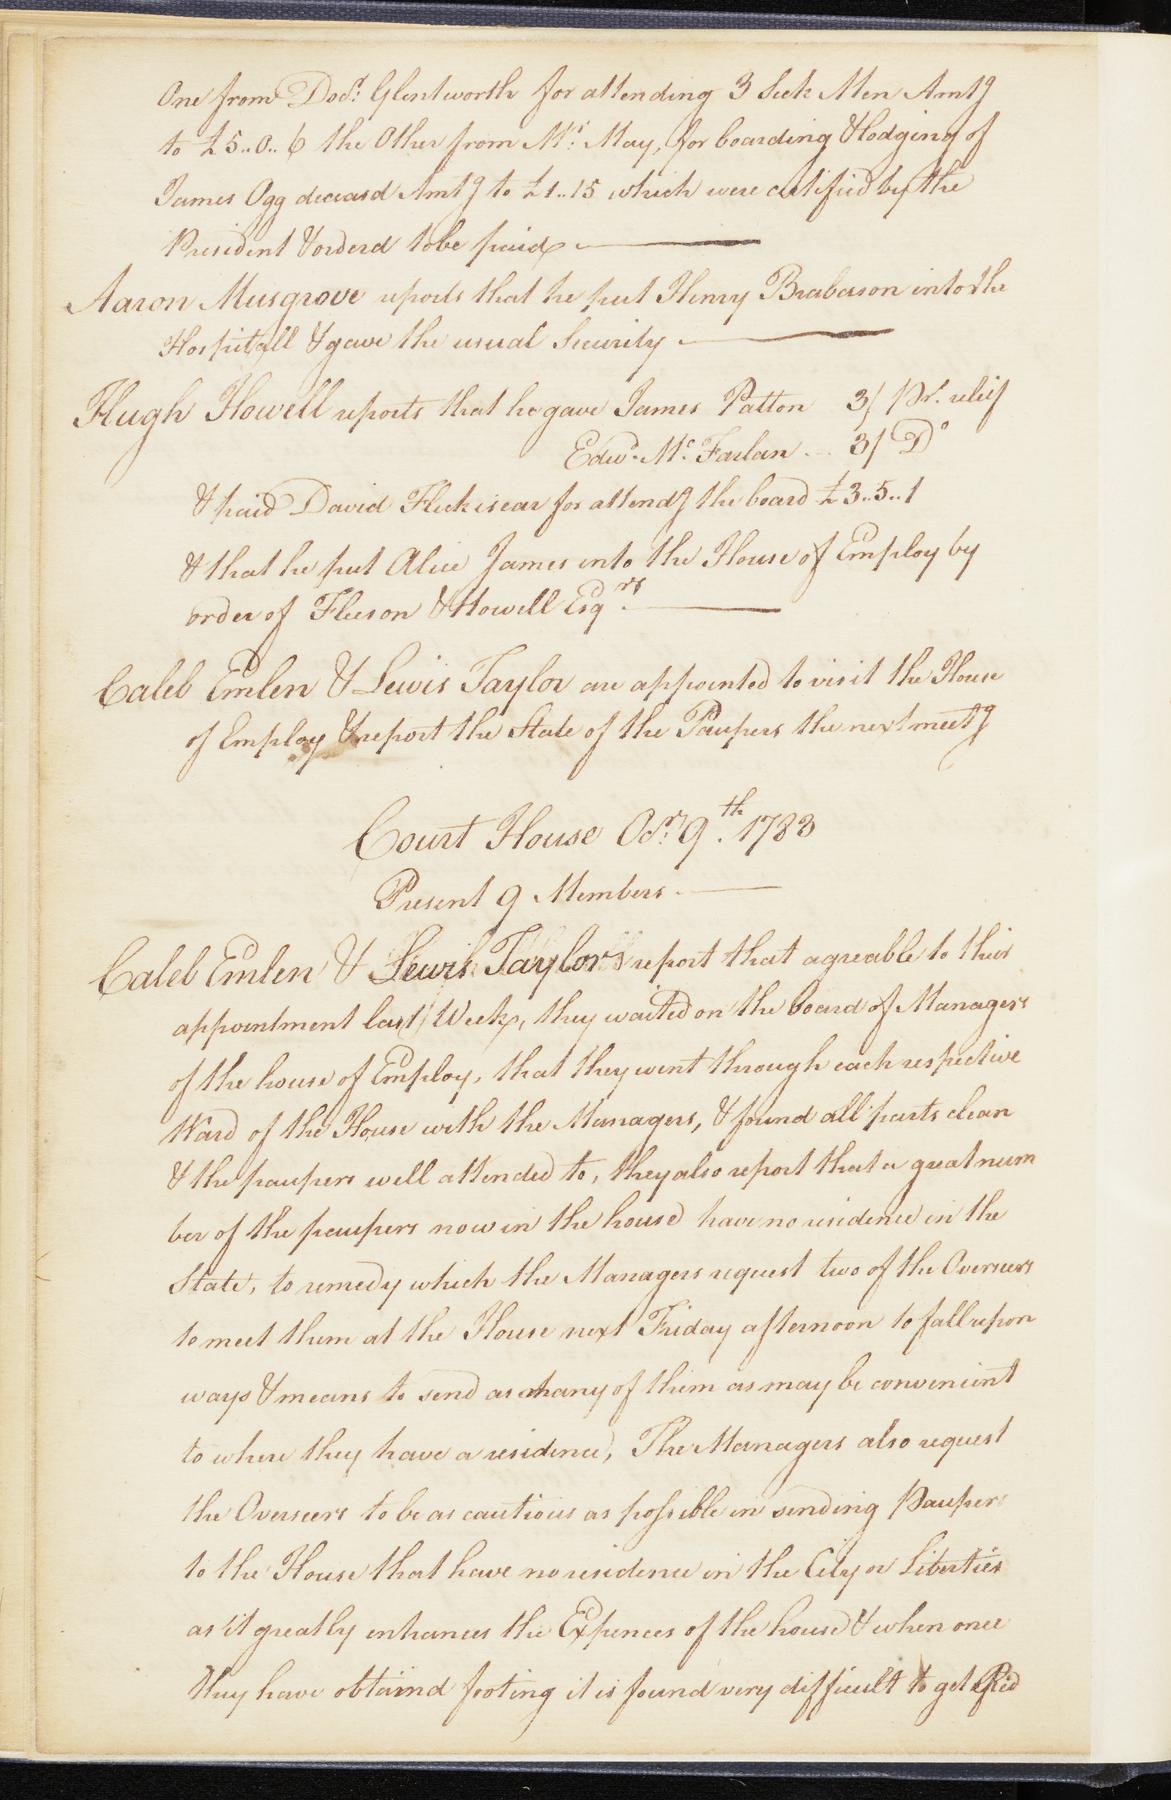 One from Docr. Glentworth for attending 3 Sick Men Amtg
to £5..0..6 the Other from Mrs. May, for boarding & lodging of
James Ogg deceasd Amtg to £1..15 which were certified by the
President & orderd to be paid
Aaron Musgrove reports that he put Henry Braberson into the
Hospitall & gave the usual Security
Hugh Howell reports that he gave James Patton 3/ Pr. relief
Edwd. Mc. Farlan .. 3/ Do
& paid David Fleckisear for attendg the board £3..5..1
& that he put Alice James into the House of Employ by
order of Fleeson & Howell Esqrs.
Caleb Emlen & Lewis Taylor are appointed to visit the House
of Employ & report the State of the Paupers the next meetg
Court House Ocr. 9th. 1783
Present 9 Members
Caleb Emlen & Lewis Taylor report that agreable to their
appointment last Week, they waited on the board of Managers
of the house of Employ, that they went through each respective
Ward of the House with the Managers, & found all parts clean
& the paupers well attended to, they also report that a great num
ber of the paupers now in the house have no residence in the
State, to remedy which the Managers request two of the Overseers
to meet them at the House next Friday afternoon to fall upon
ways & means to send as many of them as may be convenient
to where they have a residence, The Managers also request
the Overseers to be as cautious as possible in sending Paupers
to the House that have no residence in the City or Liberties
as it greatly enhances the Expences of the house & when once
they have obtaind footing it is found very difficult to get Rid